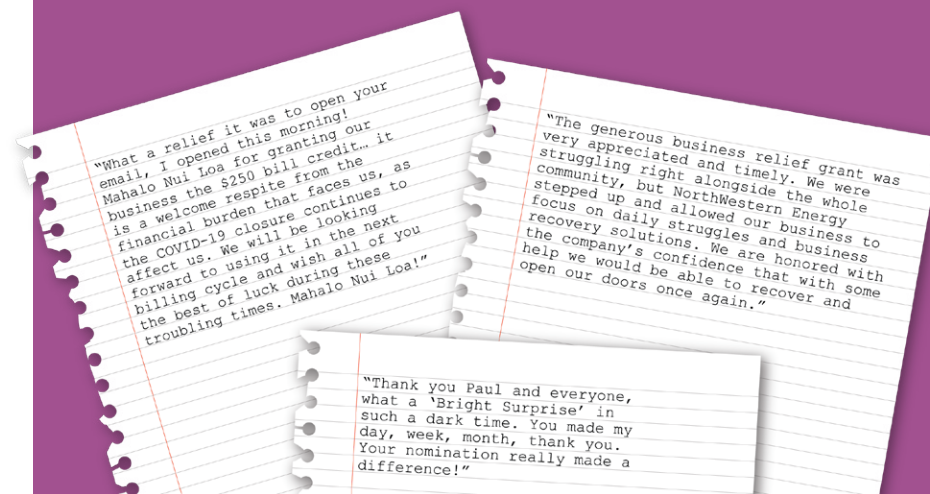 “What a relief it was to open your
email, I opened this morning!
Mahalo Nui Loa for granting our
business the $250 bill credit… it
is a welcome respite from the
financial burden that faces us, as
the COVID-19 closure continues to
affect us. We will be looking
forward to using it in the next
billing cycle and wish all of you
the best of luck during these
troubling times. Mahalo Nui Loa!”
“The generous business relief grant was
very appreciated and timely. We were
struggling right alongside the whole
community, but NorthWestern Energy
stepped up and allowed our business to
focus on daily struggles and business
recovery solutions. We are honored with
the company’s confidence that with some
help we would be able to recover and
open our doors once again.”
“Thank you Paul and everyone,
what a ‘Bright Surprise’ in
such a dark time. You made my
day, week, month, thank you.
Your nomination really made a
difference!”